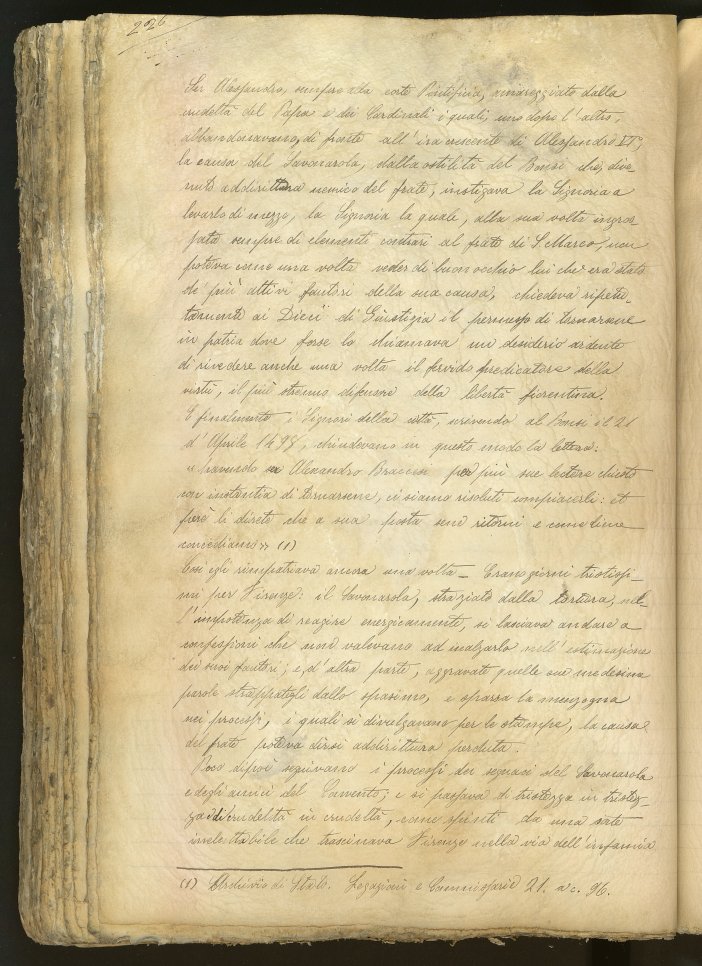 226
Ser Alessandro, sempre alla corte Pontificia, amareggiato dalla
crudeltà del Papa e dei Cardinali i quali, uno dopo l'altro,
abbandonavano, di fronte all'ira crescente di Alessandro VI°,
la causa del Savonarola, dalla ostilità del Bonsi che, dive
nuto addirittura nemico del frate, instigava la Signoria a
levarlo di mezzo, la Signoria la quale, alla sua volta ingros-
sata sempre di elementi contrari al frate di S. Marco, non
poteva come una volta veder di buon occhio lui che era stato
de' più attivi fautori della sua causa, chiedeva ripetu-
tamente ai Dieci di Giustizia il permesso di tornarsene
in patria dove forse lo chiamava un desiderio ardente
di rivedere anche una volta il fervido predicatore della
virtù, il più strenuo difensore della libertà fiorentina.
E finalmente i Signori della città, scrivendo al Bonsi il 21
d'Aprile 1498, chiudevano in questo modo la lettera:
" havendo Alexandro Braccesi per più sue lectere chiesto
con instantia di tornarsene, ci siamo risoluti compiacerli: et
però li direte che a sua posta sene ritorni e come bene
concediamo" (1)
Così egli rimpatriava ancora una volta _ Erano giorni tristissi-
mi per Firenze: il Savonarola, straziato dalla tortura, nel-
l'impotenza di reagire energicamente, si lasciava andare a
confessioni che non valevano ad inalzarlo nell'estimazione
dei suoi fautori; e, d'altra parte, aggravate quelle sue medesime
parole strappategli dallo spasimo, e sparsa la menzogna
nei processi, i quali si divulgavano per le stampe, la causa
del frate poteva dirsi addirittura perduta.
Poco dipoi seguivano i processi dei seguaci del Savonarola
e degli amici del Convento; e si passava di tristezza in tristez-
za, di crudeltà in crudeltà, come spinti da una sorte
ineluttabile che trascinava Firenze nella via dell'infamia
(1) Archivio di Stato. Legazioni e Commissarie 21. a c. 96.